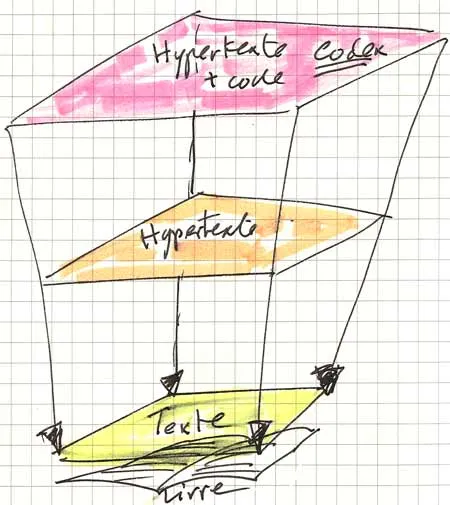 Hypertexte
+ code
Codex
Hypertexte
Texte
Livre